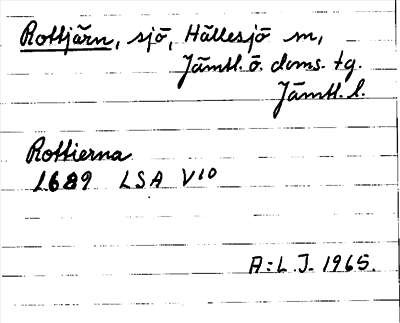 Rottjärn, sjö, Hällesjö sn,
Jämtl. ö. doms. tg.
Jämtl. l.
Rottierna
1689 LSA V10
A:L J. 1965.